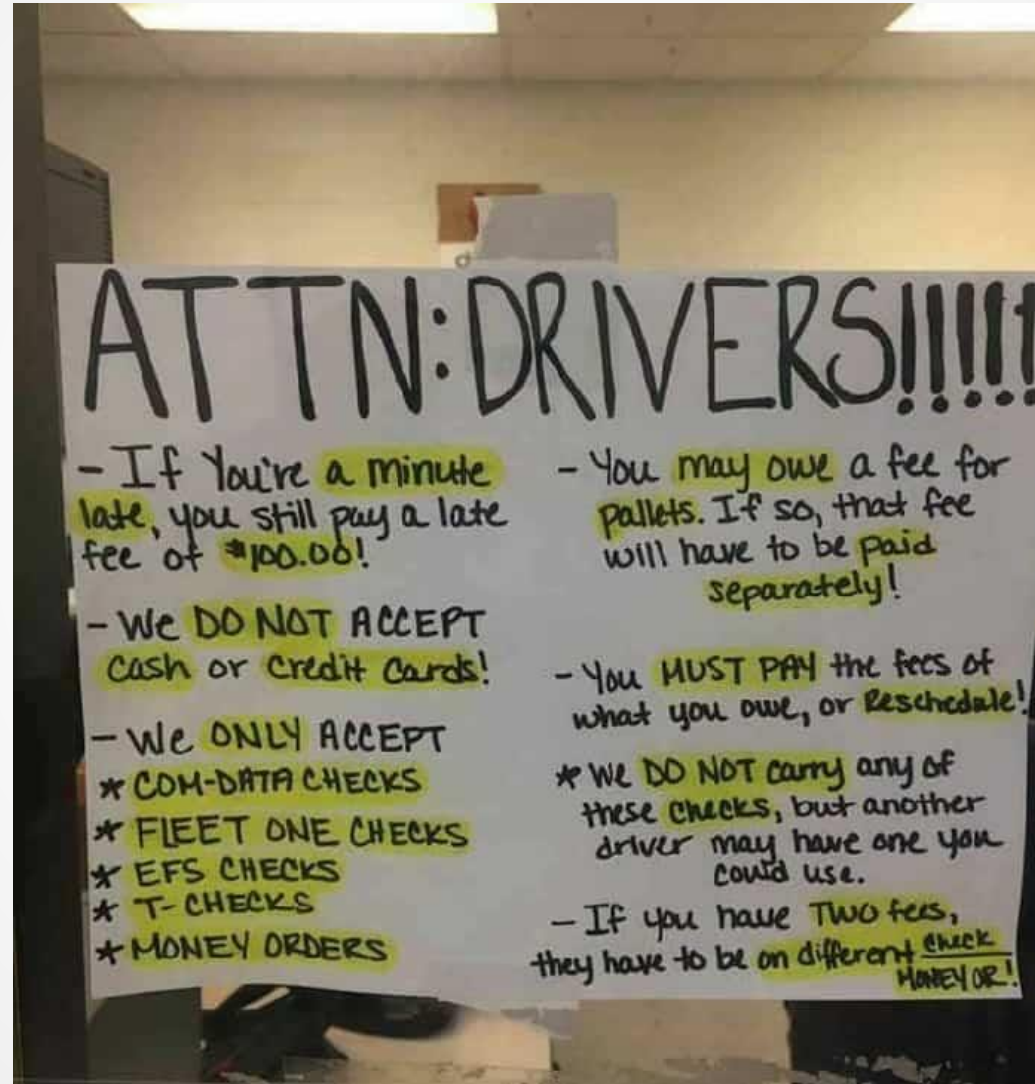 ATTN:DRIVERS!!!!!
- If You're a minute
late, you still pay a late
fee of $100.00!
- We DO NOT ACCEPT
cash or credit cards!
- We ONLY ACCEPT
* COM-DATA CHECKS
* FLEET ONE CHECKS
* EFS CHECKS
* T-CHECKS
* MONEY ORDERS
- You may owe a fee for
pallets. If so, that fee
will have to be paid
separately!
- You MUST PAY the fees of
what you owe, or Reschedule!
* We DO NOT carry any of
these checks, but another
driver may have one you
could use.
- If you have TWO fees,
they have to be on different check
MONEY OR!